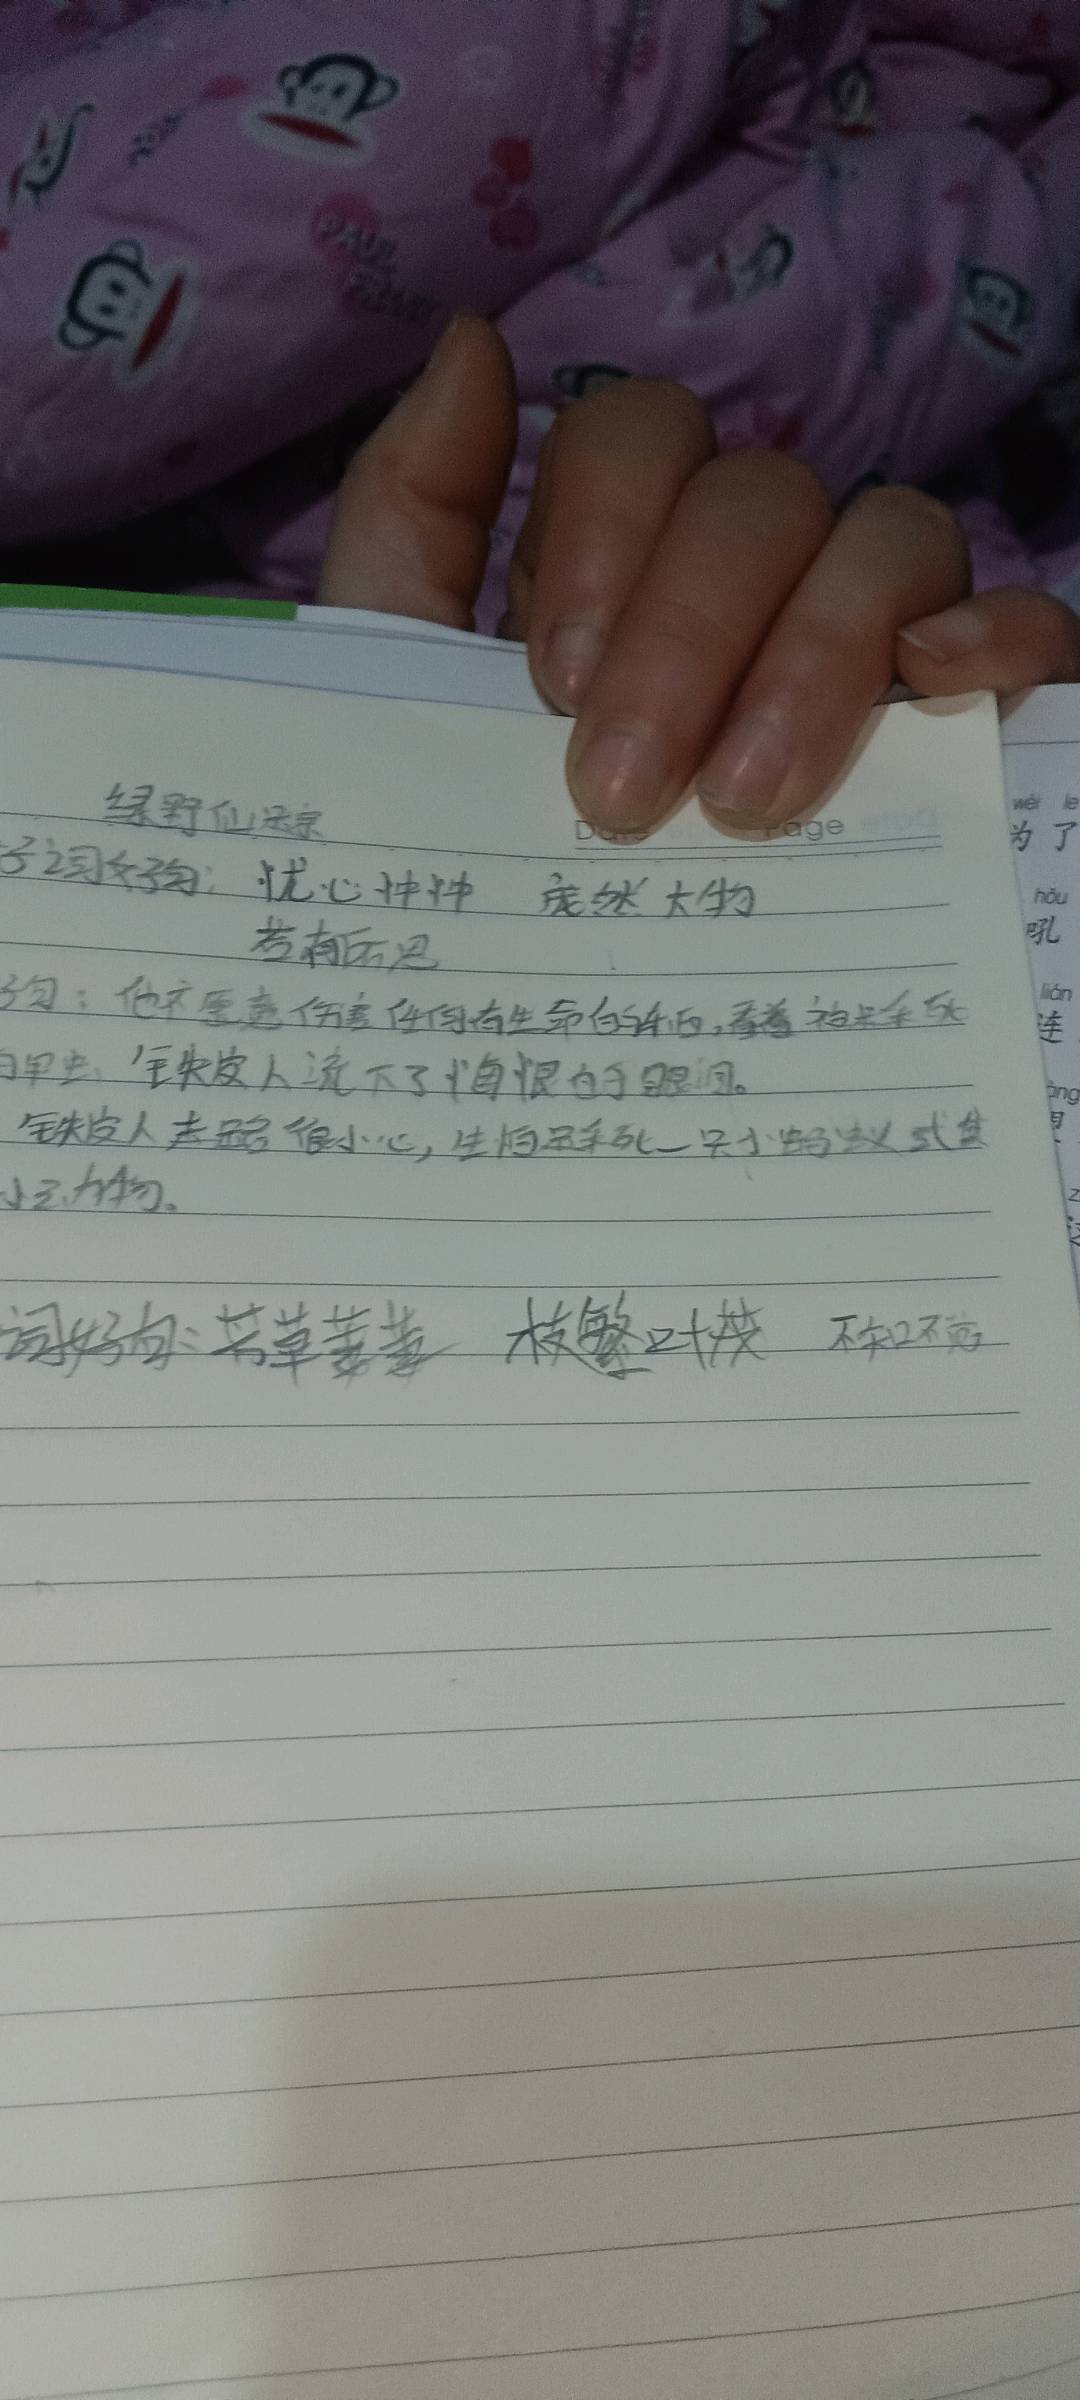 PAUL
FRANK
绿野仙踪
Date Page
好词好句：忧心忡忡 庞然大物
若有所思
句：他不愿意伤害任何有生命的东西，看着被踩死
的甲虫，铁皮人流下了悔恨的眼泪。
铁皮人走路很小心，生怕踩死一只小蚂蚁或其
小动物。
词好句：芳草萋萋 枝繁叶茂 不知不觉
wèi le
为了
hǒu
吼
lián
连